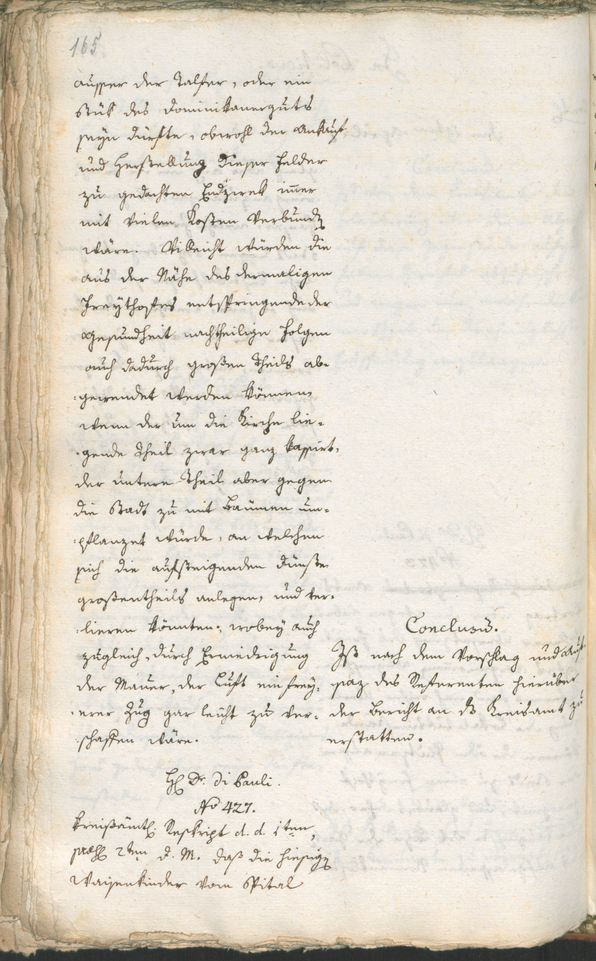 165
ausser der Talfer, oder ein
Stük des Dominikanerguts
seyn dürfte, obwohl der Ankauf
und Herstellung dieser Felder
zu gedachten Endzwek immer
mit vielen Kosten verbunden
wäre. Villeicht würden die
aus der Nähe des dermaligen
Freythofes entspringende der
Gesundheit nachtheilige Folgen
auch dadurch großen Theils ab-
gewendet werden können,
wenn der um die Kirche lie-
gende Theil zwar ganz kassirt,
der untere Theil aber gegen
die Stadt zu mit Bäumen um-
pflanzet würde, an welchen
sich die aufsteigenden Dünste
großentheils anlegen, und ver-
lieren könnten; wobey auch
zugleich durch Erniedrigung
der Mauer, der Luft ein frey-
erer Zug gar leicht zu ver-
schaffen wäre.
Conclusum.
Ist nach dem Vorschlag und Auf-
saz des Referenten hierüber
der Bericht an das Kreisamt zu
erstatten.
H. Dr. Di Pauli.
No 427.
Kreisämtl. Reskript d. d. 1ten,
praes. 2ten d. M. daß die hiesigen
Waisenkinder vom Spital